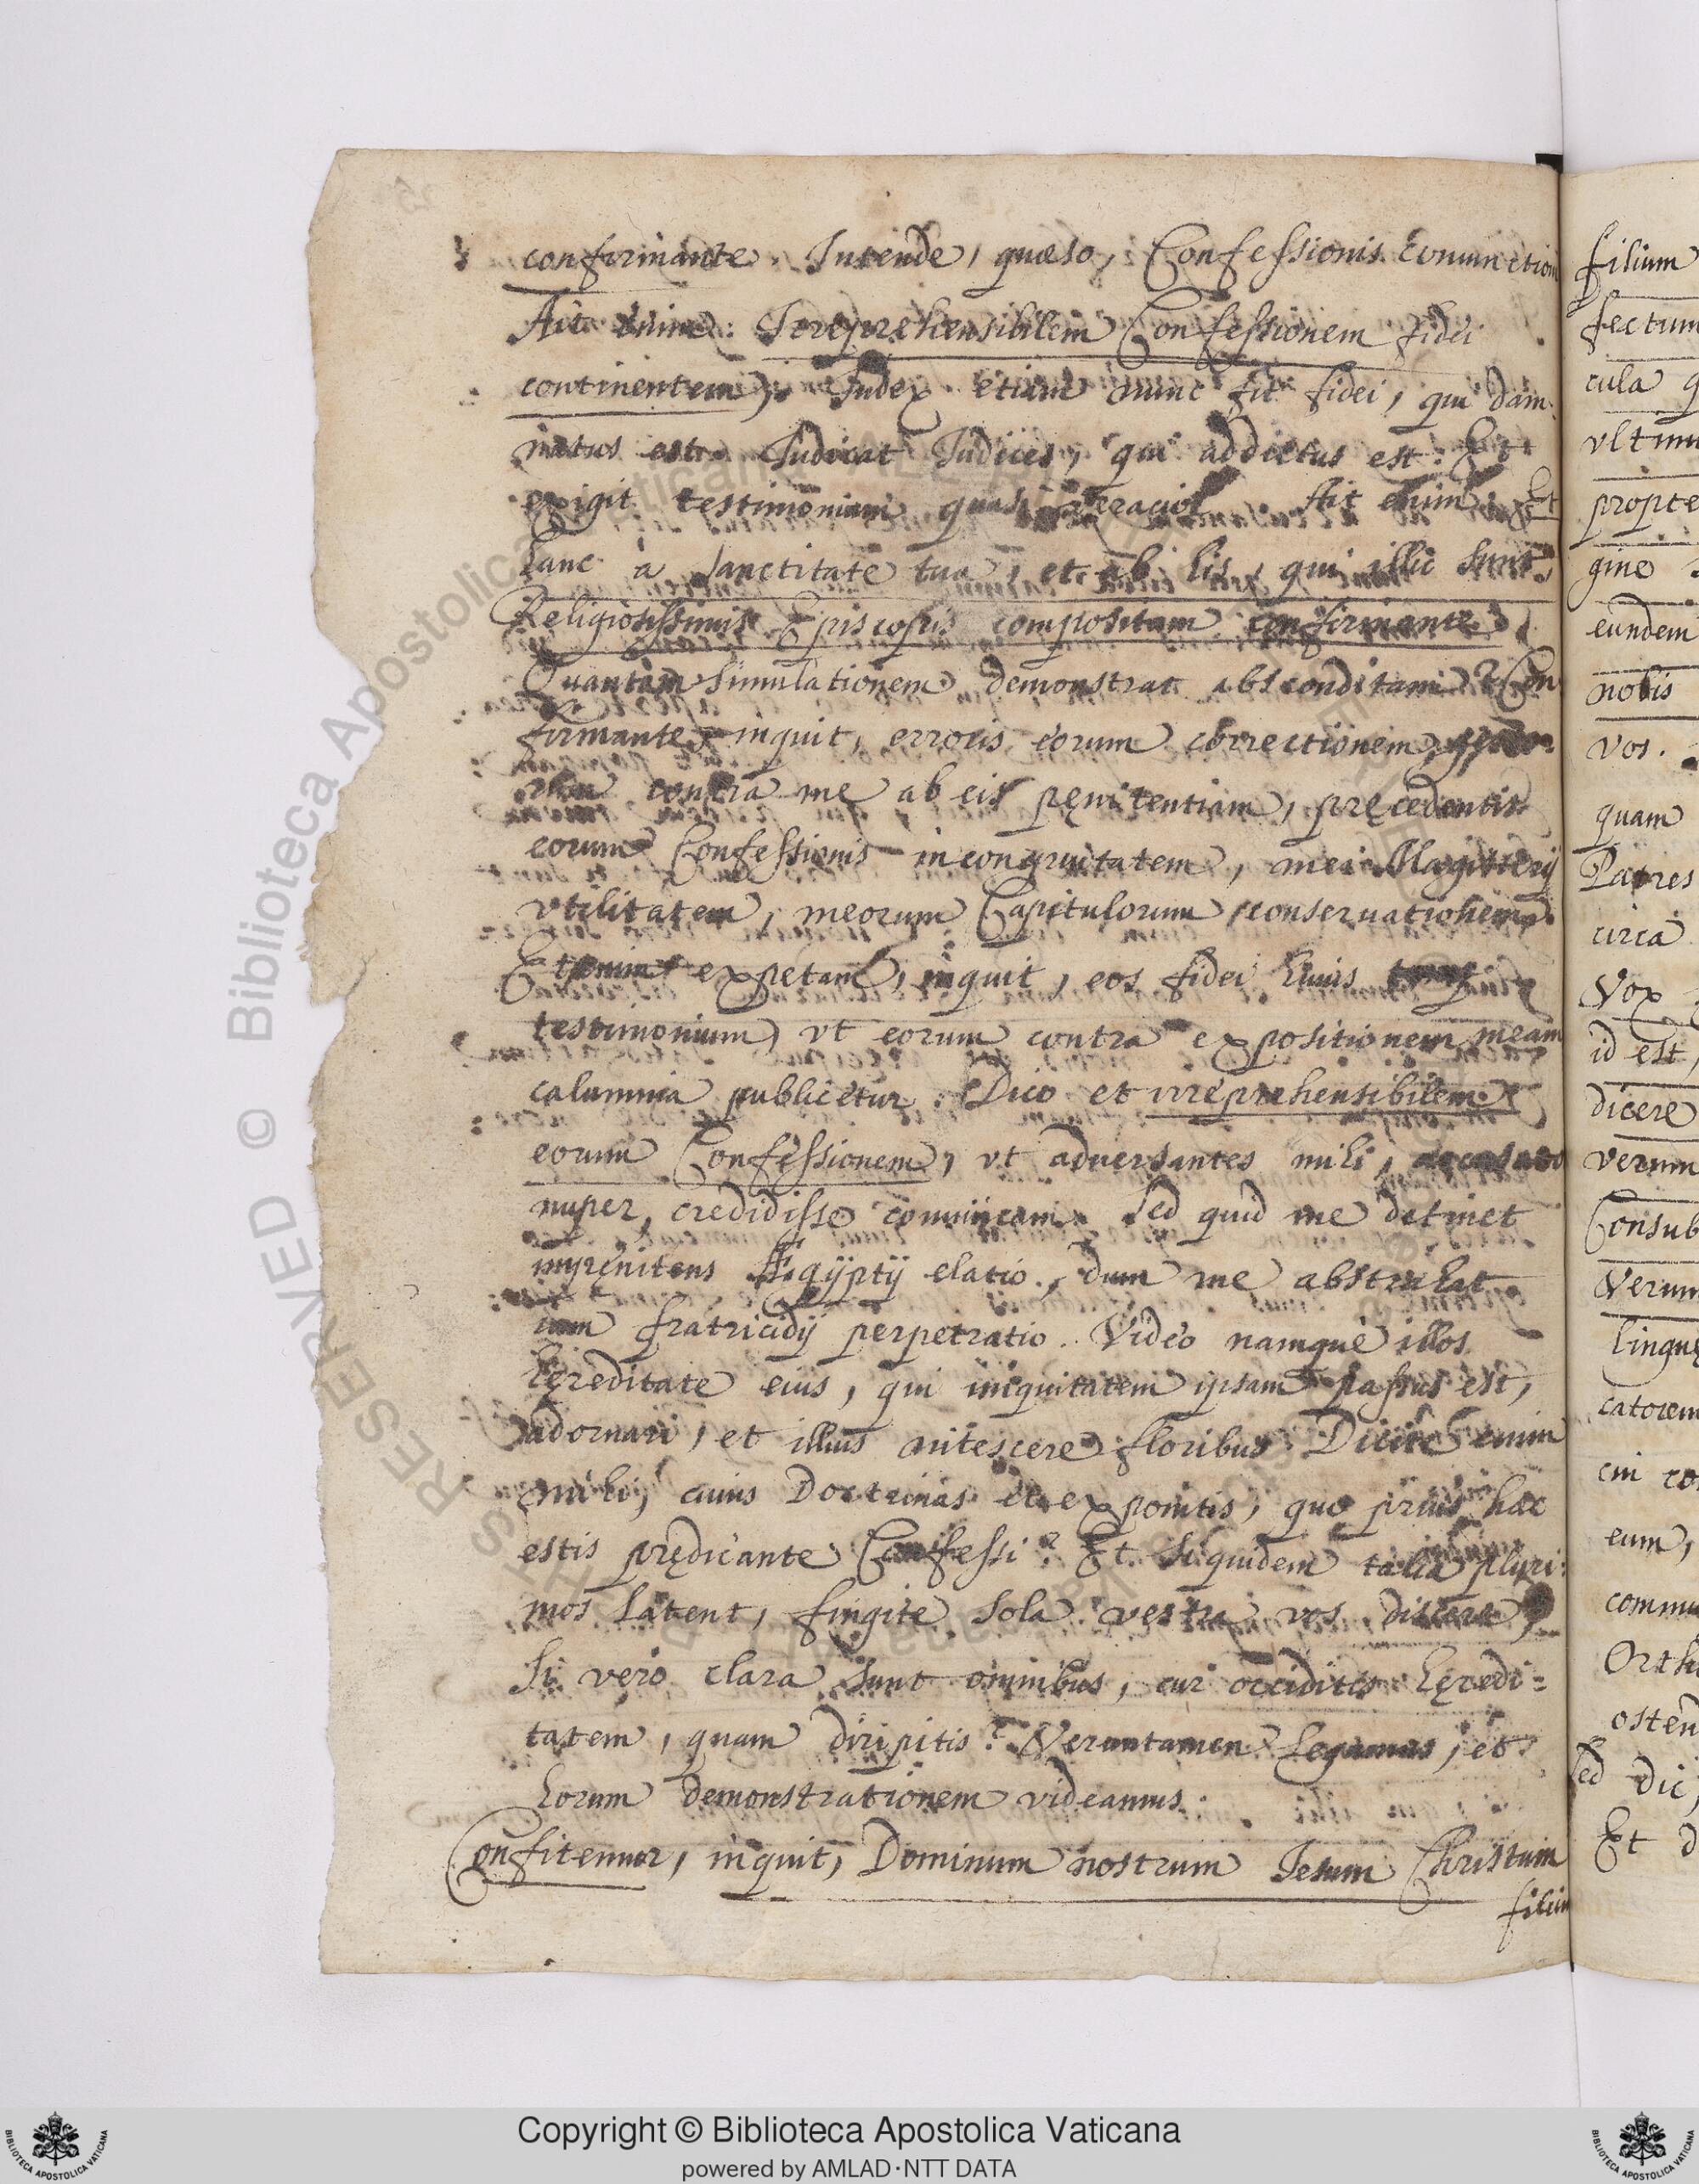 confirmante. Intende, quæso, Confessionis coniunction
Ait enim: Irreprehensibilem Confessionem fidei
continentem. Iudex etiam nunc fit fidei, qui dam
natus est. Iudicat Iudices, qui addictus est: Et
exigit testimonium quasi veracior. Ait enim: Et
hanc à sanctitate tua, et ab his, qui illic sunt,
Religiosissimis Episcopis compositam confirmante.
Quantam simulationem demonstrat absconditam? Con
firmante, inquit, erroris eorum correctionem,
contra me ab eis pęnitentiam, pręcedentis
eorum Confessionis incongruitatem, mei Magisterij
vtilitatem, meorum Capitulorum conseruationem.
expetam, inquit, eos fidei huius
testimonium, vt eorum contra expositionem meam
calumnia publicetur. Dico et irreprehensibilem
eorum Confessionem, vt aduersantes mihi,
nuper, credidisse conuincam. Sed quid me detinet
impęnitens Ægijptij elatio, dum me abstrahat
eum fratricidij perpetratio. Video namque illos
hęreditate eius, qui iniquitatem ipsam passus est,
adornari, et illius nitescere floribus. Dicite enim
mihi, cuius Doctrinas exponitis, quo prius hæc
estis prędicante Confessi? Et siquidem talia pluri:
mos latent, fingite sola vestra vos dicere,
Si vero clara sunt omnibus, cur occiditis hęredi=
tatem, quam diripitis? Veruntamen legamus, et
horum demonstrationem videamus.
Confitemur, inquit, Dominum nostrum Iesum Christum
filium
filium
fectum
cula q
vltim
propte
gine
eundem
nobis
vos.
quam
Patres
circa
Vox
id est,
dicere
verum
Consub
Verum
linguę
catorem
cui co
eum,
commu
Orth
osten
sed dic,
Et d
© Biblioteca Apostolica Vaticana
RESERVED
Copyright © Biblioteca Apostolica Vaticana
powered by AMLAD·NTT DATA
BIBLIOTECA APOSTOLICA VATICANA
BIBLIOTECA APOSTOLICA VATICANA